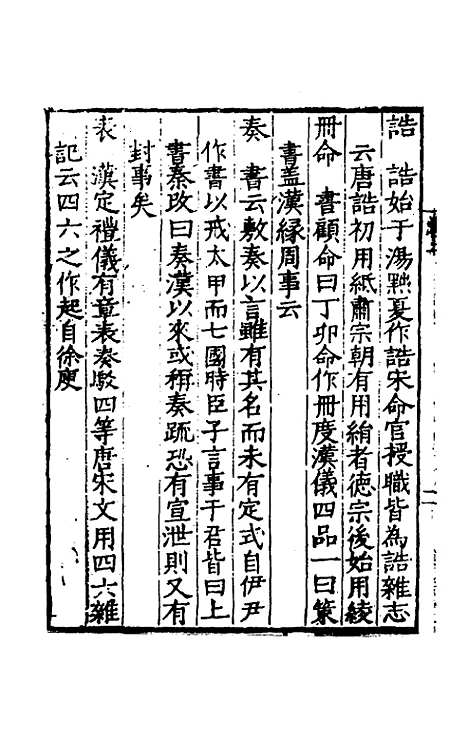 誥　誥始于湯黜夏作誥宋命官授職皆為誥雜志
云唐誥初用紙肅宗朝有用絹者德宗後始用綾
冊命　書顧命曰丁卯命作冊度漢儀四品一曰策
書盖漢緣周事云
奏　書云敷奏以言雖有其名而未有定式自伊尹
作書以戒太甲而七國時臣子言事于君皆曰上
書秦改曰奏漢以來或稱奏疏恐有宣泄則又有
封事矣
表　漢定禮儀有章表奏駁四等唐宋文用四六雜
記云四六之作起自徐庾